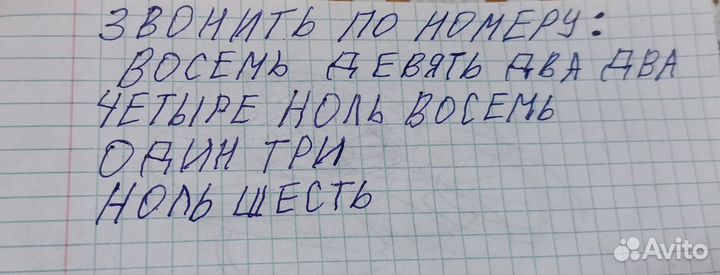 ЗВОНИТЬ ПО НОМЕРУ:
ВОСЕМЬ ДЕВЯТЬ ДВА ДВА
ЧЕТЫРЕ НОЛЬ ВОСЕМЬ
ОДИН ТРИ
НОЛЬ ШЕСТЬ
Avito